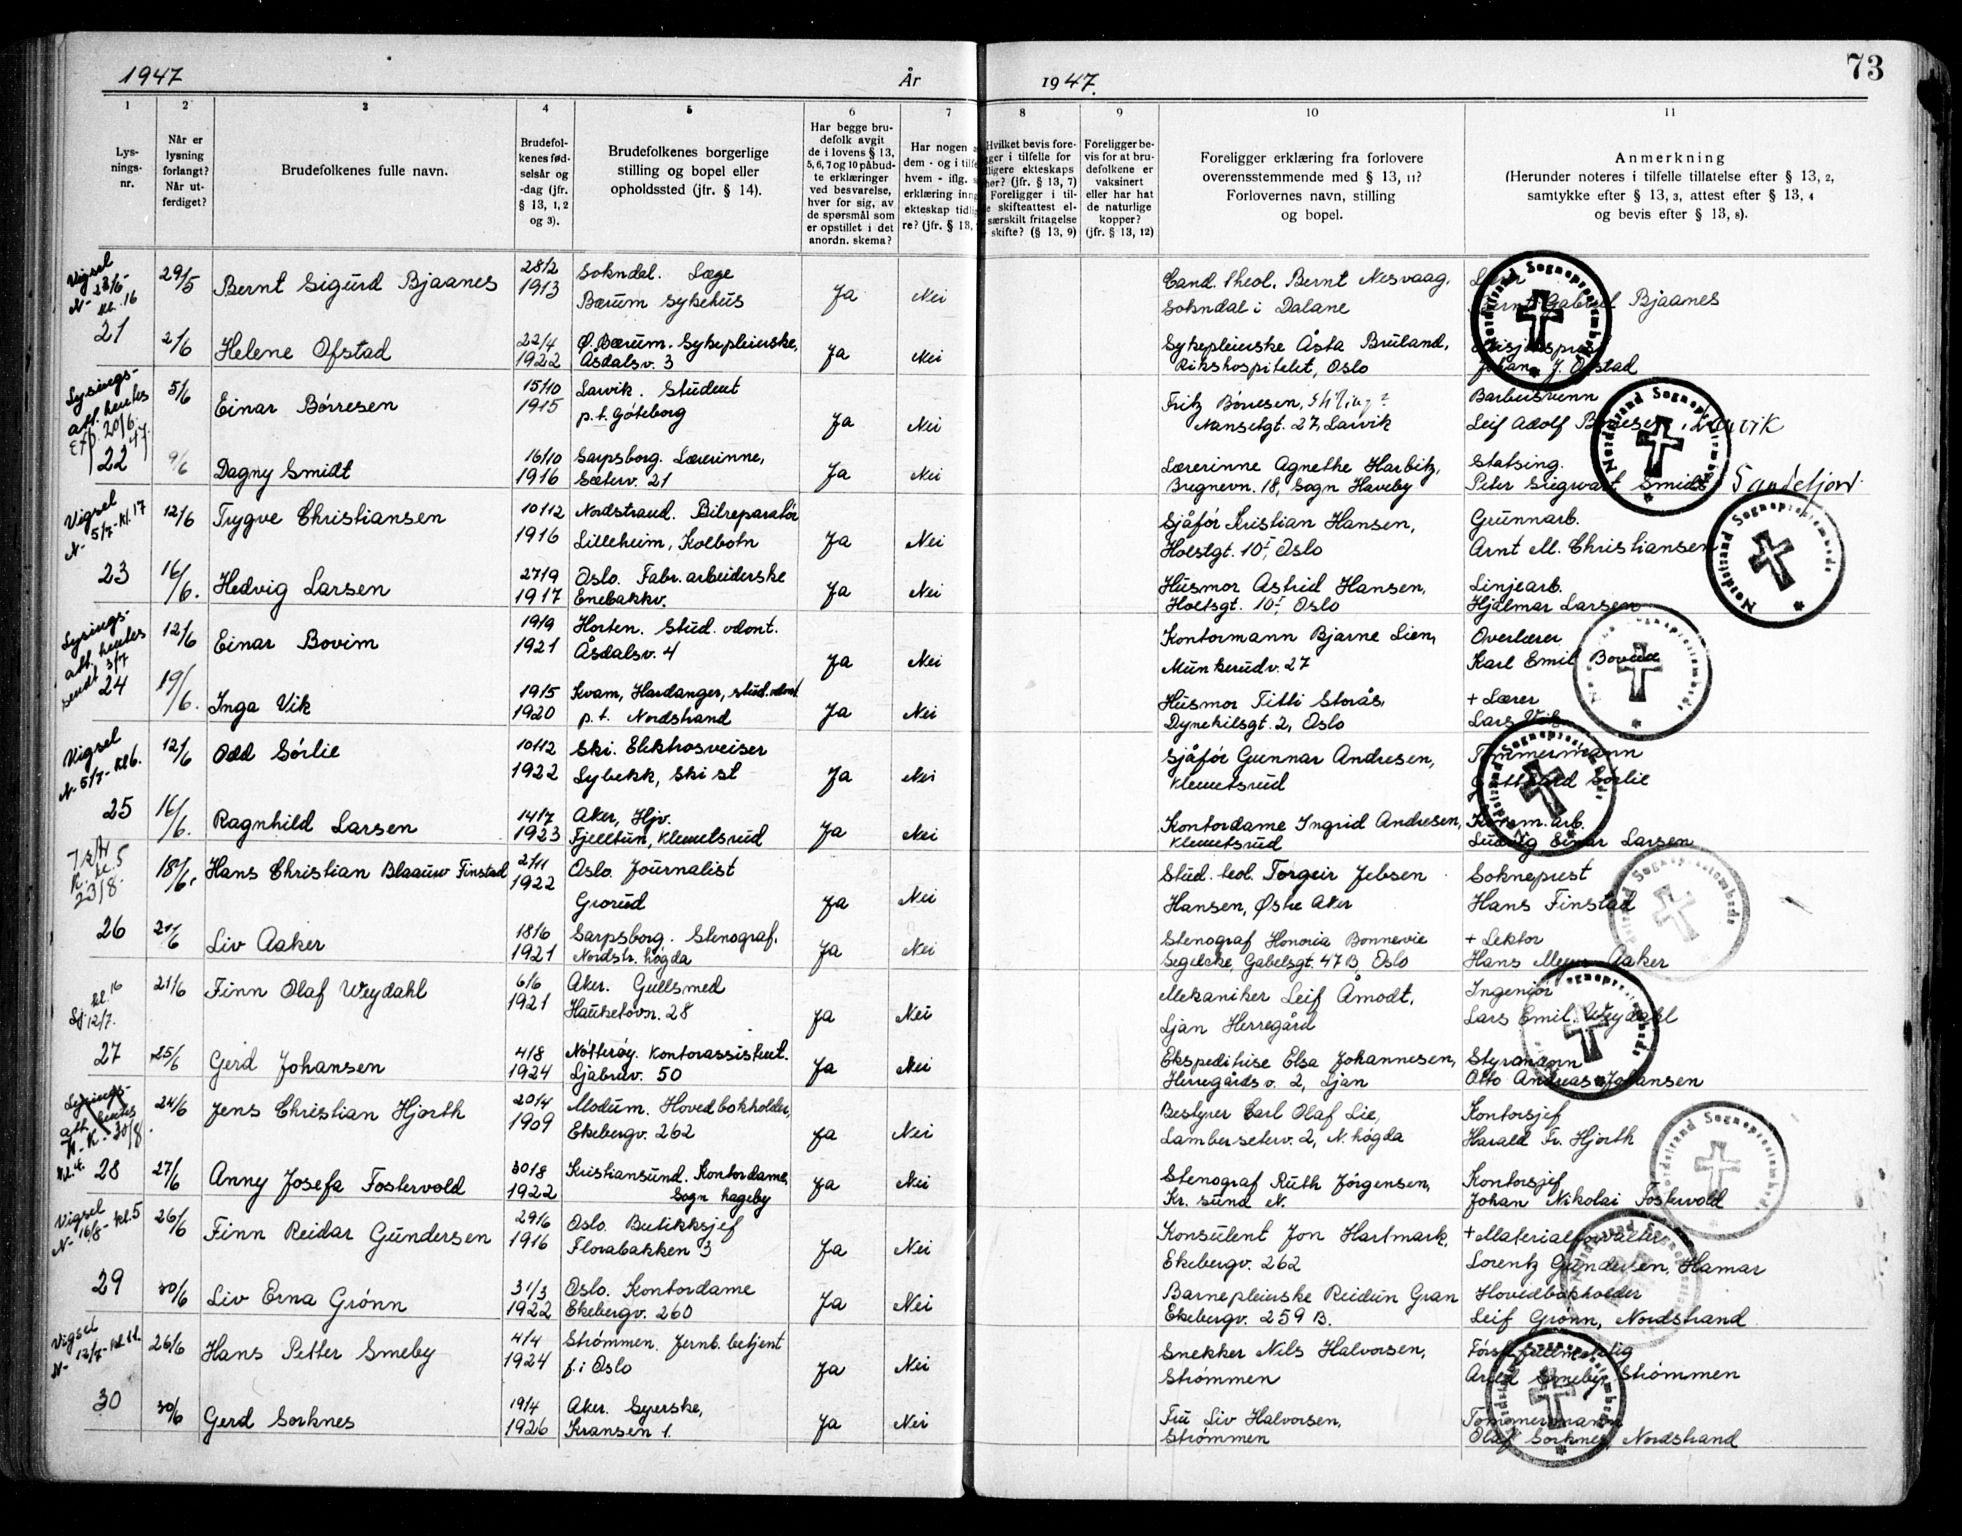 1947 År 1947. 73
1 2 3 4 5 6 7 8 9 10 11
Lys-
nings-
nr.
Når er
lysning
forlangt?
Når ut-
ferdiget?
Brudefolkenes fulle navn.
Brudefol-
kenes fød-
selsår og
-dag (jfr.
§ 13, 1, 2
og 3).
Brudefolkenes borgerlige
stilling og bopel eller
opholdssted (jfr. § 14).
Har begge bru-
defolk avgit
de i lovens § 13,
5, 6, 7 og 10 påbud-
te erklæringer
ved besvarelse,
hver for sig, av
de spørsmål som
er opstillet i det
anordn. skema?
Har nogen a
dem - og i tilfe
hvem - iflg. s
erklæring inng
ekteskap tidlig
re? (jfr. § 13,
Hvilket bevis fore-
ger i tilfelle for
ligere ekteskaps
hør? (jfr. § 13, 7)
Foreligger i til-
e skifteattest el-
særskilt fritagelse
skifte? (§ 13, 9)
Foreligger be-
vis for at bru-
defolkene er
vaksinert
eller har hat
de naturlige
kopper?
(jfr. § 13, 12)
Foreligger erklæring fra forlovere
overensstemmende med § 13, 11?
Forlovernes navn, stilling
og bopel.
Anmerkning
(Herunder noteres i tilfelle tillatelse efter § 13, 2,
samtykke efter § 13, 3, attest efter § 13, 4
og bevis efter § 13, 8).
Vigsel
N- 28/6-
kl. 16
21
29/5 Bernt Sigurd Bjaanes 28/2 1913 Sokndal. Læge
Bærum sykehus Ja Nei Cand. theol. Bernt Nesvaag,
Sokndal i Dalane
Bernt Gabriel Bjaanes
2/6 Helene Ofstad 22/4 1922 Ø. Bærum. Sykepleierske,
Åsdalsv. 3 Ja Nei Sykepleierske Åsta Bruland,
Rikshospitalet, Oslo
Johan J. Ofstad
Lysings-
att. hentes
Exp. 20/6 47.
22
5/6 Einar Børresen 15/10 1915 Larvik. Student
p.t. Göteborg Ja Nei Fritz Børresen,
Nansetgt. 27, Larvik
Barbersvenn
Leif Adolf Børresen, Larvik
9/6 Dagny Smidt 16/10 1916 Sarpsborg. Lærerinne,
Sæterv. 21 Ja Nei Lærerinne Agnethe Harbitz,
Bregnevn. 18, Sogn Haveby
Statsing.
Peter Sigwart Smidt Sandefjord
Vigsel
N- 5/7-kl. 17
23
12/6 Trygve Christiansen 10/12 1916 Nordstrand. Bilreparatør
Lilleheim, Kolbotn Ja Nei Sjåfør Kristian Hansen,
Holstgt. 10 I, Oslo
Grunnarb.
Arnt M. Christiansen
16/6. Hedvig Larsen 27/9 1917 Oslo. Fabr. arbeiderske
Enebakkv. Ja Nei Husmor Astrid Hansen,
Holtsgt. 10 I Oslo
Linjearb.
Hjalmar Larsen
Lysings-
att. hentes
sendt 3/7
24
12/6 Einar Bovim 19/9 1921 Horten. Stud. odont.
Åsdalsv. 4 Ja Nei Kontormann Bjarne Lien,
Munkerudv. 27
Overlærer
Karl Emil Bovim
19/6. Inga Vik 19/5 1920 Kvam, Hardanger, stud. odont
p. t. Nordstrand Ja Nei Husmor Titti Storås,
Dynekilsgt. 2, Oslo
+ Lærer
Lars Vik
Vigsel
N- 5/7- kl 6.
25
12/6 Odd Sørlie 10/12 1922 Ski. Elektrosveiser
Lybekk, Ski st Ja Nei Sjåfør Gunnar Andresen,
Klemetsrud
Tømmermann
Sørlie
16/6. Ragnhild Larsen 14/7 1923 Aker, Hjv.
Fjelltun, Klemetsrud Ja Nei Kontordame Ingrid Andresen,
Klemetsrud
Komm. arb.
Ludvig Einar Larsen
kl. 5
23/8.
26
18/6. Hans Christian Blaauw Finstad 2/11 1922 Oslo. Journalist
Grorud Ja Nei Stud. teol. Torgeir Jebsen
Hansen, Østre Aker
Sokneprest
Hans Finstad
21/6 Liv Aaker 18/6 1921 Sarpsborg. Stenograf.
Nordstr. høgda Ja Nei Stenograf Honoria Bonnevie
Segelcke, Gabelsgt. 47 B, Oslo
+ Lektor
Hans Meyer Aaker
kl. 16
Lj 12/7.
27
21/6 Finn Olaf Weydahl 6/6 1921 Aker. Gullsmed
Hauketovn. 28 Ja Nei Mekaniker Leif Åmodt,
Ljan Herregård
Ingeniør
Lars Emil Weydahl
25/6 Gerd Johansen 4/8 1924 Nøtterøy. Kontorassistent.
Ljabruv. 50 Ja Nei Ekspeditrise Elsa Johannesen,
Herregårds v. 2, Ljan
Styrmann
Otto Andreas Johansen
Lysings-
att. hentes
N-K- 30/8.
kl. 4.
28
24/6 Jens Christian Hjorth 20/4 1909 Modum. Hovedbokholder,
Ekebergv. 262 Ja Nei Bestyrer Carl Olaf Lie,
Lamberseterv. 2, N. høgda
Kontorsjef
Harald Fr. Hjorth
27/6 Anny Josefa Fostervold 30/8 1922 Kristiansund. Kontordame,
Sogn hageby Ja Nei Stenograf Ruth Jørgensen,
Kr. sund N.
Kontorsjef
Johan Nikolai Fostervold
Vigsel
N- 16/8- kl. 5
29
26/6 Finn Reidar Gundersen 29/6 1916 Oslo. Butikksjef
Florabakken 3 Ja Nei Konsulent Jon Hartmark,
Ekebergv. 262
+ Materialforvalter
Lorentz Gundersen, Hamar
30/6 Liv Erna Grønn 31/3 1922 Oslo. Kontordame
Ekebergv. 260 Ja Nei Barnepleierske Reidun Gran
Ekebergv. 259 B.
Hovedbokholder
Leif Grønn, Nordstrand
Vigsel
N- 12/7-
30
26/6 Hans Petter Smeby 4/4 1924 Strømmen. Jernb. betjent
f. i Oslo Ja Nei Snekker Nils Halvorsen,
Strømmen
Smeby, Strømmen
30/6 Gerd Sorknes 19/4 1926 Aker. Syerske,
Kransen 1. Ja Nei Fru Liv Halvorsen,
Strømmen
Tømmermann
Olaf Sorknes, Nordstrand
Nordstrand Sogneprestembede
Nordstrand Sogneprestembede
Nordstrand Sogneprestembede
Nordstrand Sogneprestembede
Nordstrand Sogneprestembede
Nordstrand Sogneprestembede
Nordstrand Sogneprestembede
Nordstrand Sogneprestembede
Nordstrand Sogneprestembede
Nordstrand Sogneprestembede